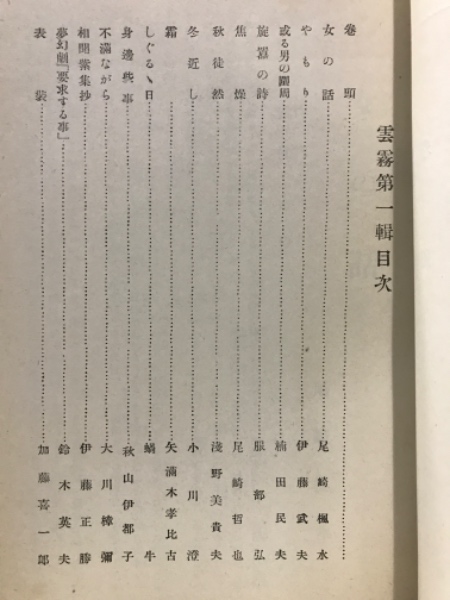 雲霧第一輯目次
巻頭
女の話 尾崎楓水
やもり 伊藤武夫
或る男の圍周 楠田民夫
旋嚣の詩 服部弘
焦燥 尾崎哲也
秋徒然 淺野美貴夫
冬近し 小川澄
霜 矢滿木孝比古
しぐるゝ日 蝸牛
身邊些事 秋山伊都子
不滿ながら 大川樟彌
相聞紫集抄 伊藤正勝
夢幻劇『要求する事』 鈴木英夫
表裝 加藤喜一郎